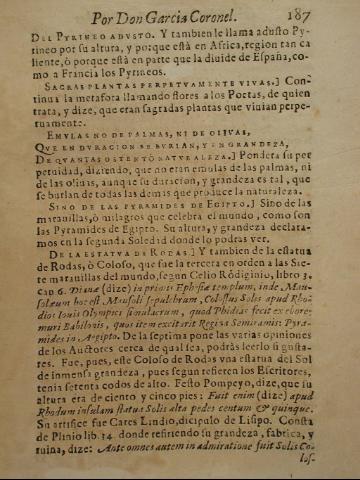 Por Don Garcia Coronel. 187
DEL PYRINEO ADVSTO. Y tambien le llama adusto Py-
rineo por su altura, y porque està en Africa, region tan ca
liente, ò porque està en parte que la diuide de España, co-
mo a Francia los Pyrineos.
SACRAS PLANTAS PERPETVAMENTE VIVAS.] Con
tinua la metafora llamando flores a los Poetas, de quien
trata, y dize, que eran sagradas plantas que viuian perpe-
tuamente.
EMVLAS NO DE PALMAS, NI DE OLIVAS,
QVE EN DVRACION SE BVRLAN, Y EN GRANDEZA,
DE QVANTAS OSTENTÒ NATVRALEZA.] Pondera su per
petuidad, diziendo, que no eran emulas de las palmas, ni
de las oliuas, aunque su duracion, y grandeza es tal, que
se burlan de todas las demas que produce la naturaleza.
SINO DE LAS PYRAMIDES DE EGIPTO.] Sino de las
marauillas, ò milagros que celebra el mundo, como son
las Pyramides de Egipto. Su altura, y grandeza declara-
mos en la segunda Soledad donde lo podras ver.
DE LA ESTATVA DE RODAS.] Y tambien de la estatua
de Rodas, ò Coloso, que fue la tercera en orden a las Sie-
te marauillas del mundo, segun Celio Rodiginio, libro 3.
cap 6. Dianæ (dize) in prioris Ephesiæ templum, inde Mau-
solæum hoc est Mausoli sepulchrum, Colossus Solis apud Rho-
dios Iouis Olympici simulacrum, quod Phidias fecit ex ebore:
muri Babilonis, quos item excitarit Regina Semiramis: Pyra-
mides in Aegipto. De la septima pone las varias opiniones
de los Auctores cerca de qual sea, podràs leerlo si gusta-
res. Fue, pues, este Coloso de Rodas vna estatua del Sol
de inmensa grandeza, pues segun refieren los Escritores,
tenia setenta codos de alto. Festo Pompeyo, dize, que su
altura era de ciento y cinco pies: Fuit enim (dize) apud
Rhodum insulam statua Solis alta pedes centum & quinque.
Su artifice fue Cares Lindio, dicipulo de Lisipo. Consta
de Plinio lib. 34. donde refiriendo su grandeza, fabrica, y
ruina, dize: Ante omnes autem in admiratione fuit Solis Co-
los-